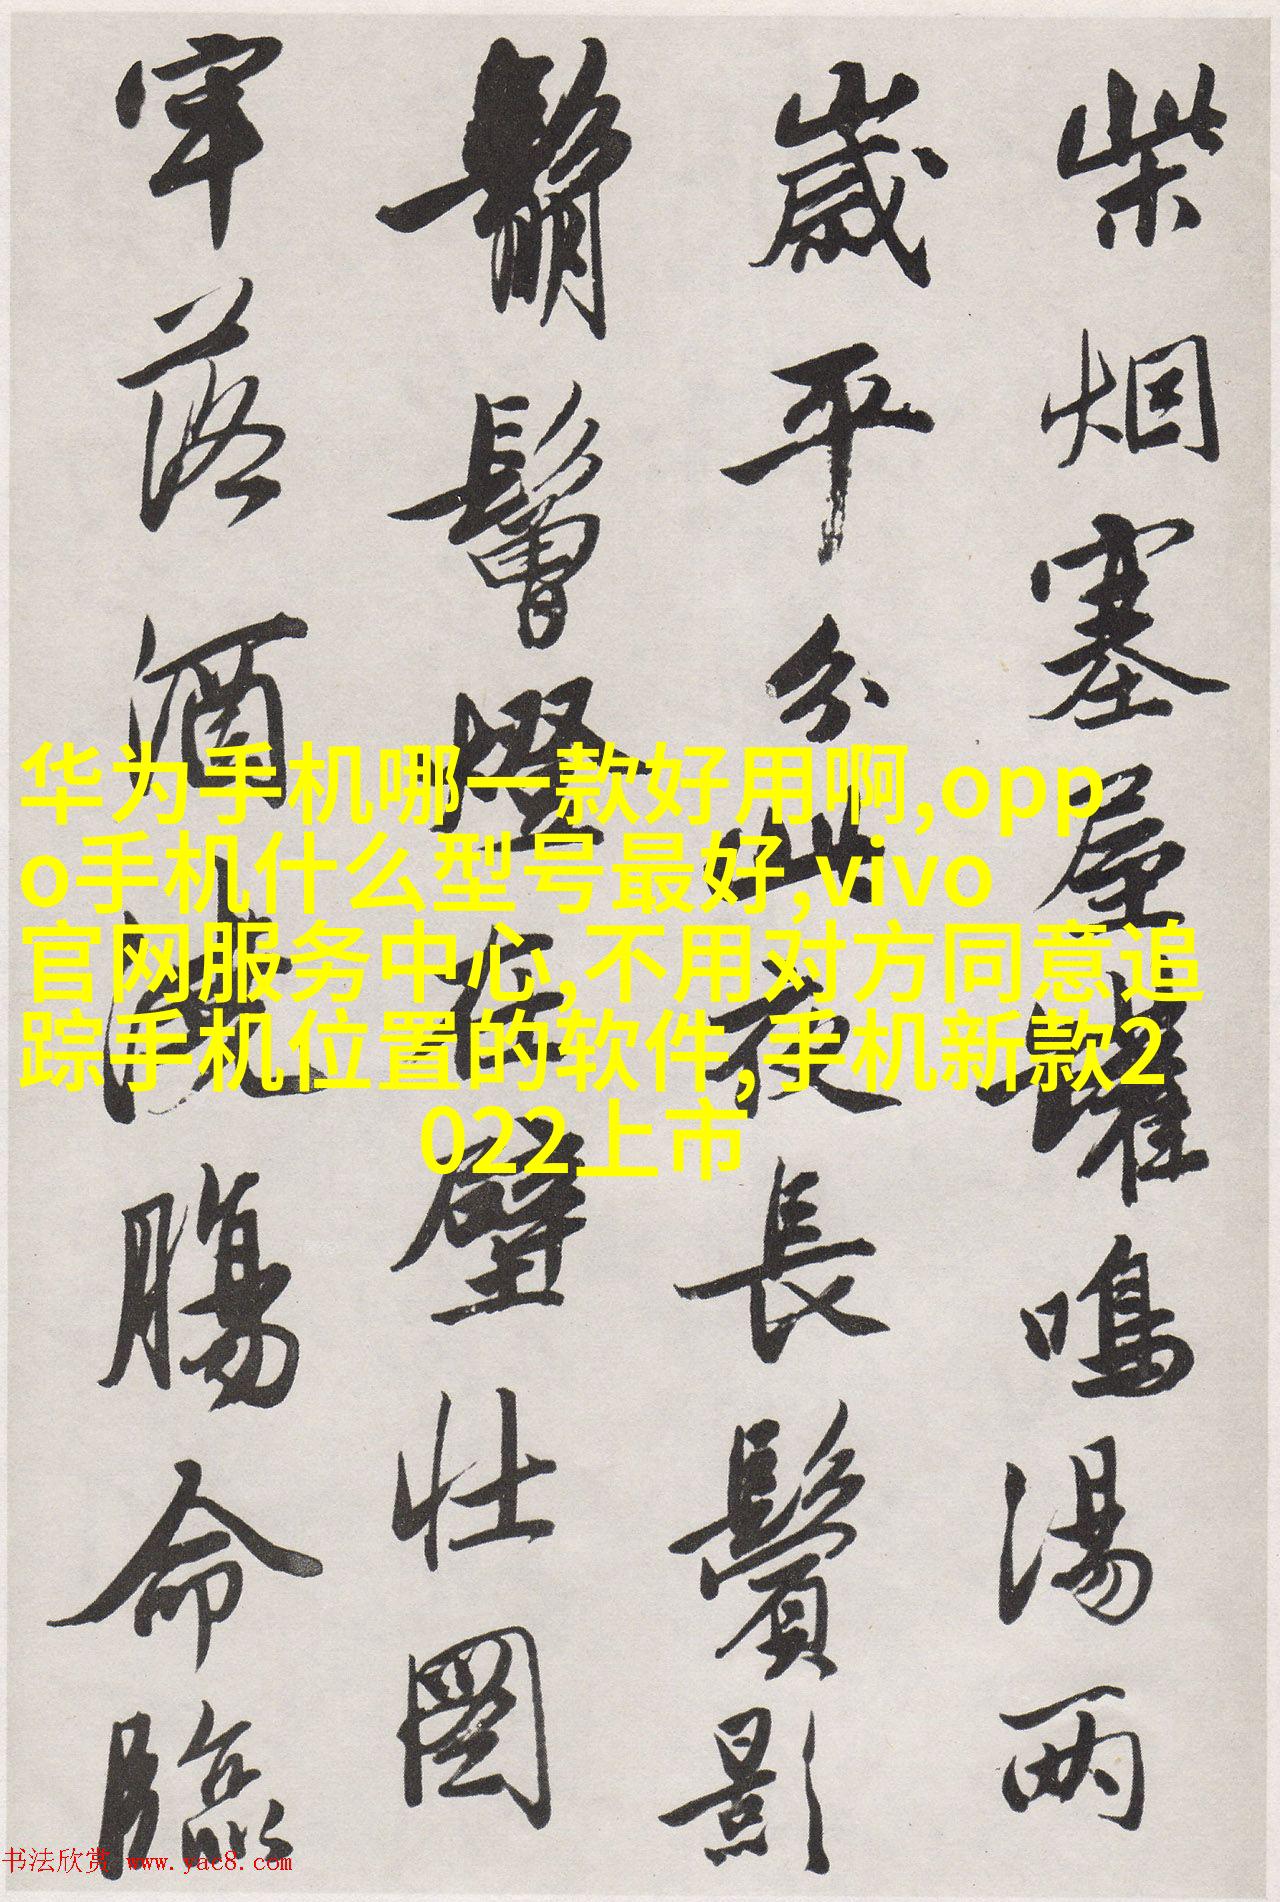 柴烟塞屋罐鳴湯两
歲平分此夜長鬢影
鬅鬙燈在壁壮圖
牢落酒澆腸命臨
华为手机哪一款好用啊,opp
o手机什么型号最好,vivo
官网服务中心,不用对方同意追
踪手机位置的软件,手机新款2
022上市
书法欣赏 www.yac8.com